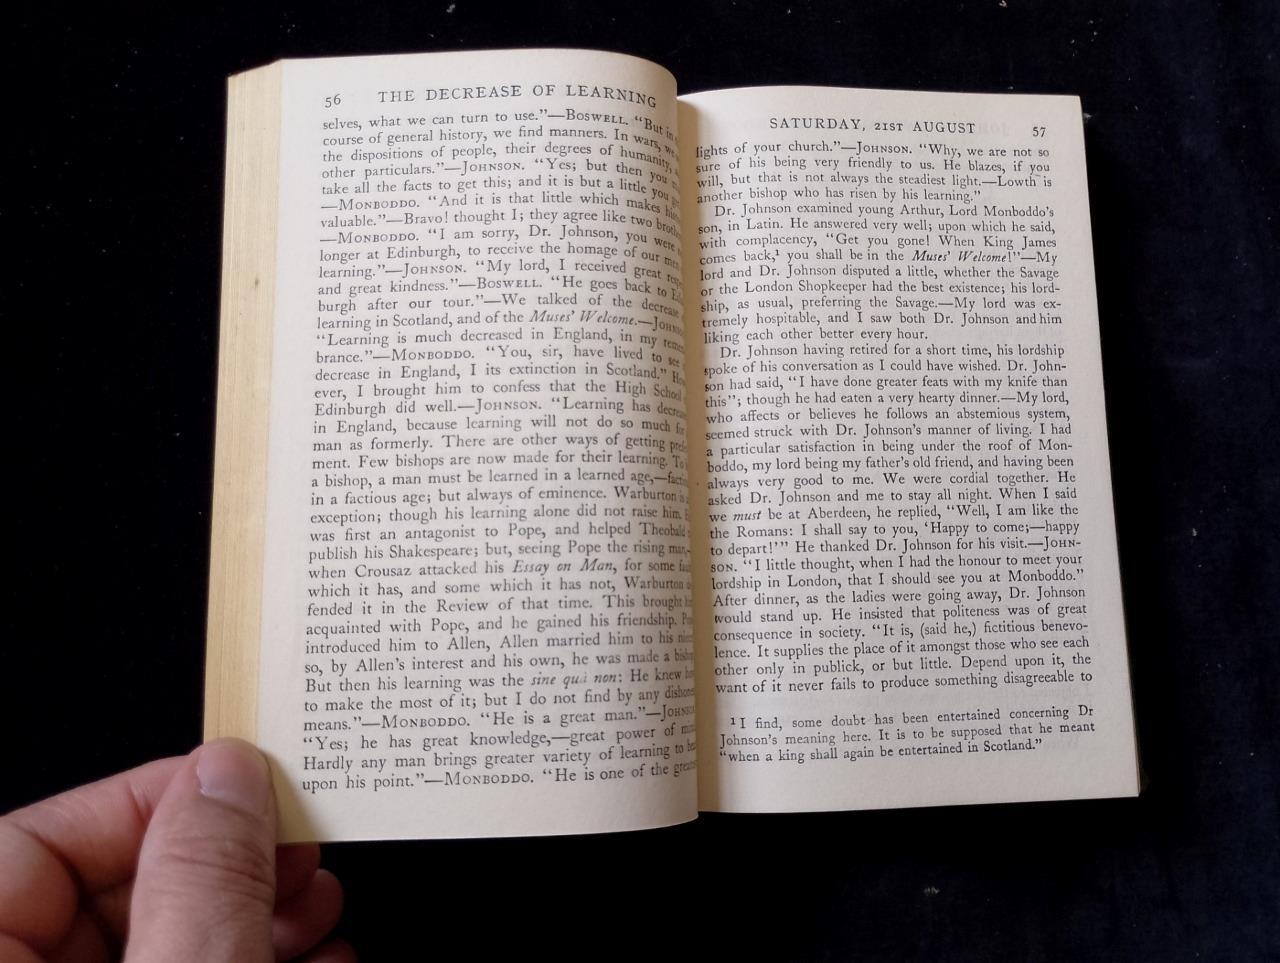 56 THE DECREASE OF LEARNING
selves, what we can turn to use.”—BOSWELL. “But in
course of general history, we find manners. In wars, we
the dispositions of people, their degrees of humanity,
other particulars.”—JOHNSON. “Yes; but then you
take all the facts to get this; and it is but a little you
—MONBODDO. “And it is that little which makes
valuable.”—Bravo! thought I; they agree like two
—MONBODDO. “I am sorry, Dr. Johnson, you were
longer at Edinburgh, to receive the homage of our
learning.”—JOHNSON. “My lord, I received great
and great kindness.”—BOSWELL. “He goes back to
burgh after our tour.”—We talked of the decrease
learning in Scotland, and of the Muses’ Welcome.—
“Learning is much decreased in England, in my
brance.”—MONBODDO. “You, sir, have lived to see
decrease in England, I its extinction in Scotland.”
ever, I brought him to confess that the High School
Edinburgh did well.—JOHNSON. “Learning has
in England, because learning will not do so much for
man as formerly. There are other ways of getting
ment. Few bishops are now made for their learning. To
a bishop, a man must be learned in a learned age,—
in a factious age; but always of eminence. Warburton is
exception; though his learning alone did not raise him.
was first an antagonist to Pope, and helped Theobald
publish his Shakespeare; but, seeing Pope the rising man,
when Crousaz attacked his Essay on Man, for some
which it has, and some which it has not, Warburton
fended it in the Review of that time. This brought
acquainted with Pope, and he gained his friendship.
introduced him to Allen, Allen married him to his
so, by Allen’s interest and his own, he was made a
But then his learning was the sine qua non: He knew
to make the most of it; but I do not find by any
means.”—MONBODDO. “He is a great man.”—
“Yes; he has great knowledge,—great power of
Hardly any man brings greater variety of learning to
upon his point.”—MONBODDO. “He is one of the
SATURDAY, 21ST AUGUST 57
lights of your church.”—JOHNSON. “Why, we are not so
sure of his being very friendly to us. He blazes, if you
will, but that is not always the steadiest light.—Lowth is
another bishop who has risen by his learning.”
Dr. Johnson examined young Arthur, Lord Monboddo’s
son, in Latin. He answered very well; upon which he said,
with complacency, “Get you gone! When King James
comes back,¹ you shall be in the Muses’ Welcome!”—My
lord and Dr. Johnson disputed a little, whether the Savage
or the London Shopkeeper had the best existence; his lord-
ship, as usual, preferring the Savage.—My lord was ex-
tremely hospitable, and I saw both Dr. Johnson and him
liking each other better every hour.
Dr. Johnson having retired for a short time, his lordship
spoke of his conversation as I could have wished. Dr. John-
son had said, “I have done greater feats with my knife than
this”; though he had eaten a very hearty dinner.—My lord,
who affects or believes he follows an abstemious system,
seemed struck with Dr. Johnson’s manner of living. I had
a particular satisfaction in being under the roof of Mon-
boddo, my lord being my father’s old friend, and having been
always very good to me. We were cordial together. He
asked Dr. Johnson and me to stay all night. When I said
we must be at Aberdeen, he replied, “Well, I am like the
the Romans: I shall say to you, ‘Happy to come;—happy
to depart!’” He thanked Dr. Johnson for his visit.—JOHN-
SON. “I little thought, when I had the honour to meet your
lordship in London, that I should see you at Monboddo.”
After dinner, as the ladies were going away, Dr. Johnson
would stand up. He insisted that politeness was of great
consequence in society. “It is, (said he,) fictitious benevo-
lence. It supplies the place of it amongst those who see each
other only in publick, or but little. Depend upon it, the
want of it never fails to produce something disagreeable to
¹ I find, some doubt has been entertained concerning Dr
Johnson’s meaning here. It is to be supposed that he meant
“when a king shall again be entertained in Scotland.”